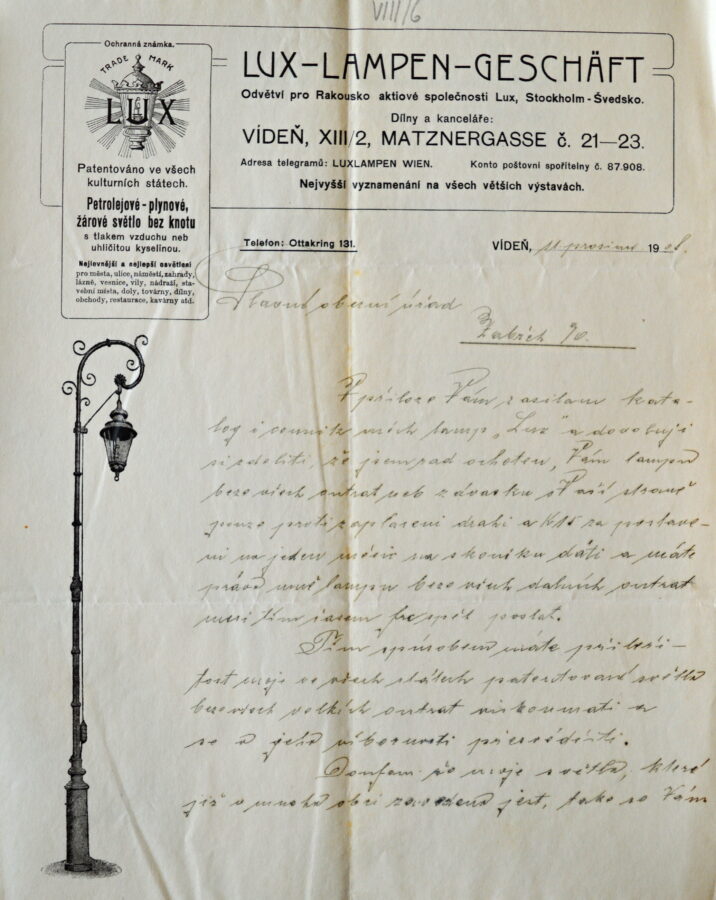 VIII/6
Ochranná známka.
TRADE MARK
LUX
Patentováno ve všech
kulturních státech.
Petrolejové-plynové,
žárové světlo bez knotu
s tlakem vzduchu neb
uhličitou kyselinou.
Nejlevnější a nejlepší osvětlení
pro města, ulice, náměstí, zahrady,
lázně, vesnice, vily, nádraží, sta-
vební místa, doly, továrny, dílny,
obchody, restaurace, kavárny atd.
LUX-LAMPEN-GESCHÄFT
Odvětví pro Rakousko aktiové společnosti Lux, Stockholm-Švedsko.
Dílny a kanceláře:
VÍDEŇ, XIII/2, MATZNERGASSE č. 21—23.
Adresa telegramů: LUXLAMPEN WIEN. Konto poštovní spořitelny č. 87.908.
Nejvyšší vyznamenání na všech větších výstavách.
Telefon: Ottakring 131.
VÍDEŇ, 11 prosince 19
Slavni obecní úřad
Zabřeh
V příloze Vám zasílam kata-
log i mých lamp „Lux" a dovoluji
si sděliti, že jsem rad ochoten, Vám lampu
beze všech outrat neb závasku s Vaší straně
pouze proti zaplacení drahi a K15 za postave-
ni na jeden měsíc na skoušku dáti a máte
právo mně lampu beze všech dalních outrat
mezi tím časem zpět poslat.
Tím spůsobem máte příleži-
tost moje ve všech státech patentované světlo
beze všech velkých outrat viskoumati a
se o jeho výbornosti přesvědčiti.
Doufam že moje světlo, které
již v mnoha obci zavedeno jest, také se Vám